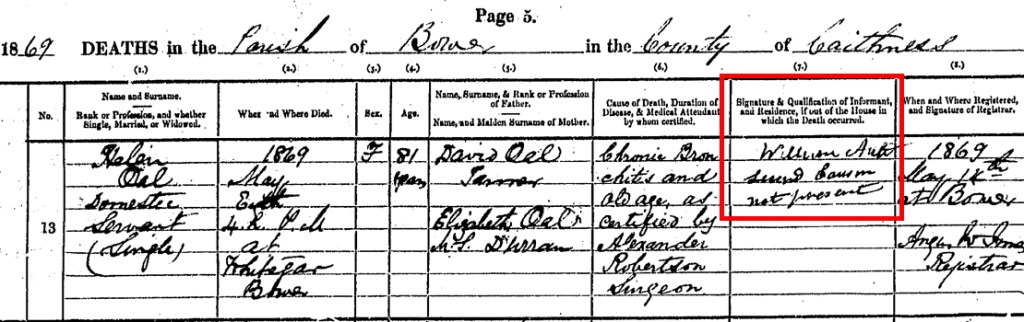 Page 5.
1869 DEATHS in the Parish of Bower in the County of Caithness
(1.) (2.) (3.) (4.) (5.) (6.) (7.) (8.)
No.
Name and Surname.
Rank or Profession, and whether
Single, Married, or Widowed.
When and Where Died.
Sex.
Age.
Name, Surname, & Rank or Profession
of Father.
Name, and Maiden Surname of Mother.
Cause of Death, Duration of
Disease, & Medical Attendant
by whom certified.
Signature & Qualification of Informant,
and Residence, if out of the House in
which the Death occurred.
When and Where Registered,
and Signature of Registrar.
13
Helen
Oal
Domestic
Servant
(Single)
1869
May
4 h. P. M
at
Bower
F
81
years
David Oal
Farmer
Elizabeth Oal
M.S. Durran
Chronic Bron
chitis and
old age, as
certified by
Alexander
Robertson
Surgeon
William
second Cousin
not present
1869
May
at Bower
Registrar